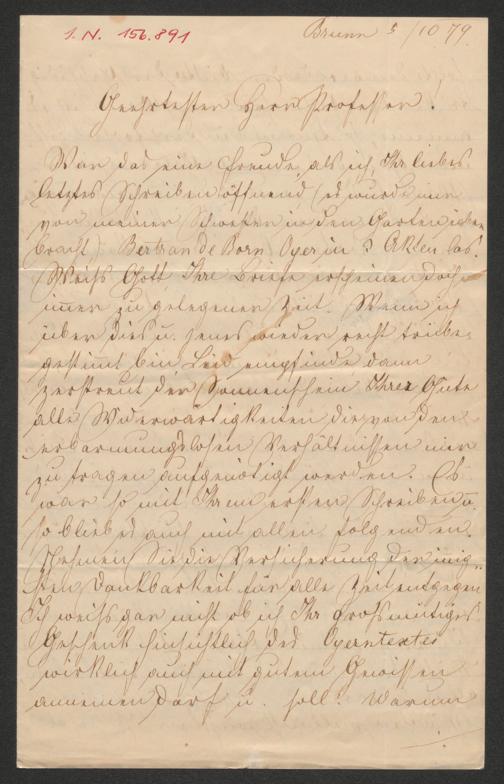 I. N. 156.891
Brünn 3/10 79
Geehrtester Herr Professor!
War das eine Freude, als ich, Ihr liebes
letztes Schreiben öffnend (es wurde mir
von meiner Schwester in den Garten
bracht) Bertran de Born Oper in 3 Akten las!
Weiß Gott Ihre Briefe erscheinen doch
immer zu gelegener Zeit. Wenn ich
über dies u. jenes wieder recht trübe
gestimmt bin Leid empfinde dann
zerstreut der Sonnenschein Ihrer Güte
alle Widerwärtigkeiten die von den
erbarmungslosen Verhältnissen mir
zu tragen aufgenötigt werden. Es
war so mit Ihrem ersten Schreiben u.
so blieb es auch mit allen folgenden.
Nehmen Sie die Versicherung der innig-
sten Dankbarkeit für alle Zeit entgegen
Ich weiß gar nicht ob ich Ihr großmütiges
Geschenk hinsichtlich des Operntextes
wirklich auch mit gutem Gewissen
annemen darf u. soll. Warum